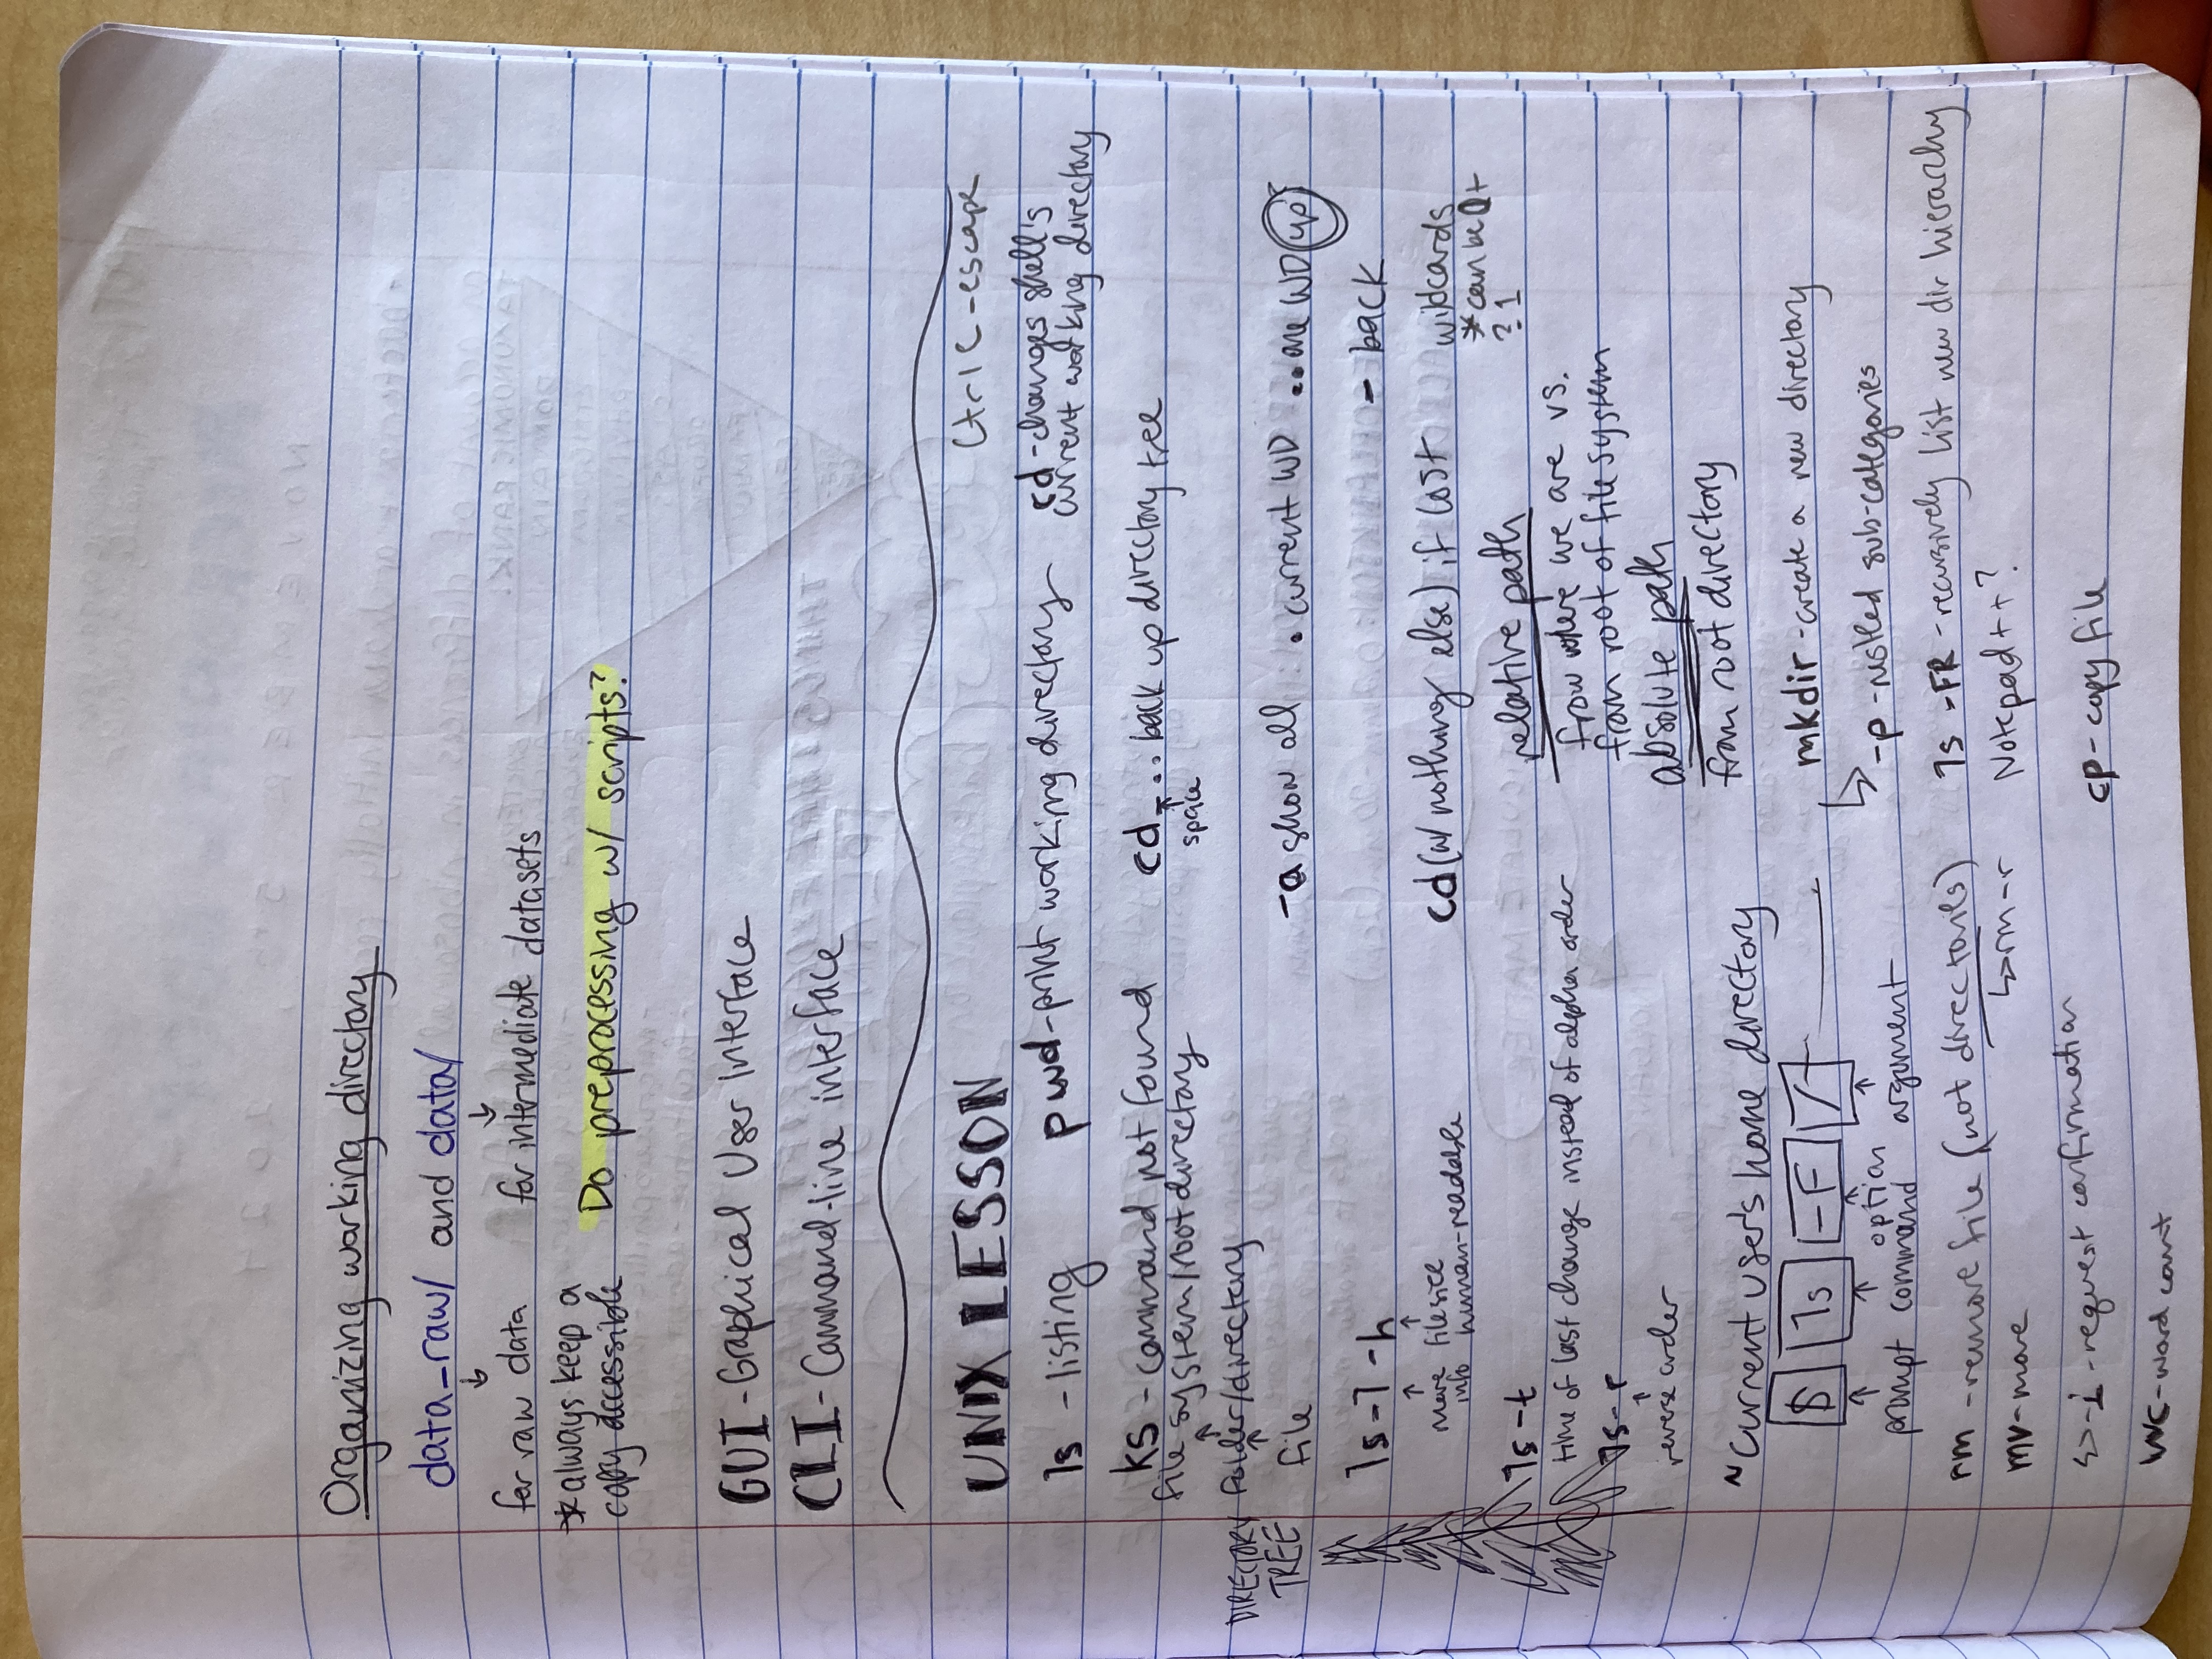 Organizing working directory
data_raw/ and data/
↓ ↓
for raw data for intermediate datasets
* always keep a
copy accessible Do preprocessing w/ scripts?
GUI - Graphical User Interface
CLI - Command-line interface
UNIX LESSON
Ctrl C - escape
ls - listing
pwd - print working directory
cd - changes shell's
current working directory
ks - command not found
cd_.. back up directory tree
↑
space
file system/root directory
↑
folder/directory
↑
file
DIRECTORY
TREE
-a show all . current WD .. one WD up
- back
ls -l -h
↑ ↑
more info
file size human-readable
cd (w/ nothing else) if lost
wildcards
* can be 0+
? 1
ls -t
time of last change instead of alpha order
ls -r
↑
reverse order
relative path
from where we are vs.
from root of file system
absolute path
from root directory
~ Current user's home directory
$ ls -F /
↑ ↑ ↑ ↑
prompt command option argument
mkdir - create a new directory
↳ -p - nestled sub-categories
rm - remove file (not directories)
↳ rm -r
ls -FR - recursively list new dir hierarchy
mv - move
Notepad++?
↳ -i - request confirmation
cp - copy file
wc - word count